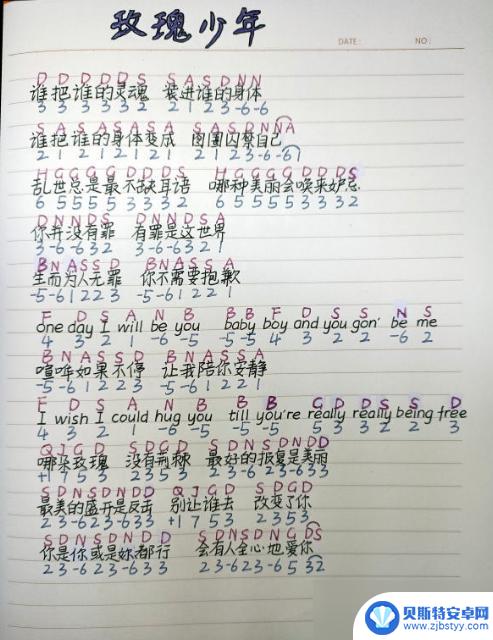 玫瑰少年
DATE: NO:
D D D D D S S A S D N N
谁把谁的灵魂 装进谁的身体
3 3 3 3 3 2 2 1 2 3 -6 -6
S A S A S A S A S A S D N N A
谁把谁的身体变成 囹圄囚禁自己
2 1 2 1 2 1 2 1 2 1 2 3 -6 -6 1
H G G G G D D D S H G G G G D D D S
乱世总是最不缺耳语 哪种美丽会唤来妒忌
6 5 5 5 5 3 3 3 2 6 5 5 5 5 3 3 3 2
D N N D S D N N D S A
你并没有罪 有罪是这世界
3 -6 -6 3 2 3 -6 -6 3 2 1
B N A S S D B N A S S A
生而为人无罪 你不需要抱歉
-5 -6 1 2 2 3 -5 -6 1 2 2 1
F D S A N B B B F D S S N S
one day I will be you baby boy and you gon' be me
4 3 2 1 -6 -5 -5 -5 4 3 2 2 -6 2
B N A S S D B N A S S A
喧哗如果不停 让我陪你安静
-5 -6 1 2 2 3 -5 -6 1 2 2 1
F D S A N B B B G D D S S D
I wish I could hug you till you're really really being free
4 3 2 1 -6 -5 -5 -5 5 3 3 2 2 3
Q J G D S D G D S D N S D N D D
哪朵玫瑰 没有荆棘 最好的报复是美丽
+1 7 5 3 2 3 5 3 2 3 -6 2 3 -6 3 3
S D N S D N D D Q J G D S D G D
最美的盛开是反击 别让谁去 改变了你
2 3 -6 2 3 -6 3 3 +1 7 5 3 2 3 5 3
S D N S D N D D S D N S D N G D S
你是你或是妳都行 会有人全心地爱你
2 3 -6 2 3 -6 3 3 2 3 -6 2 3 -6 5 3 2
贝斯特安卓网
www.zjbstyy.com